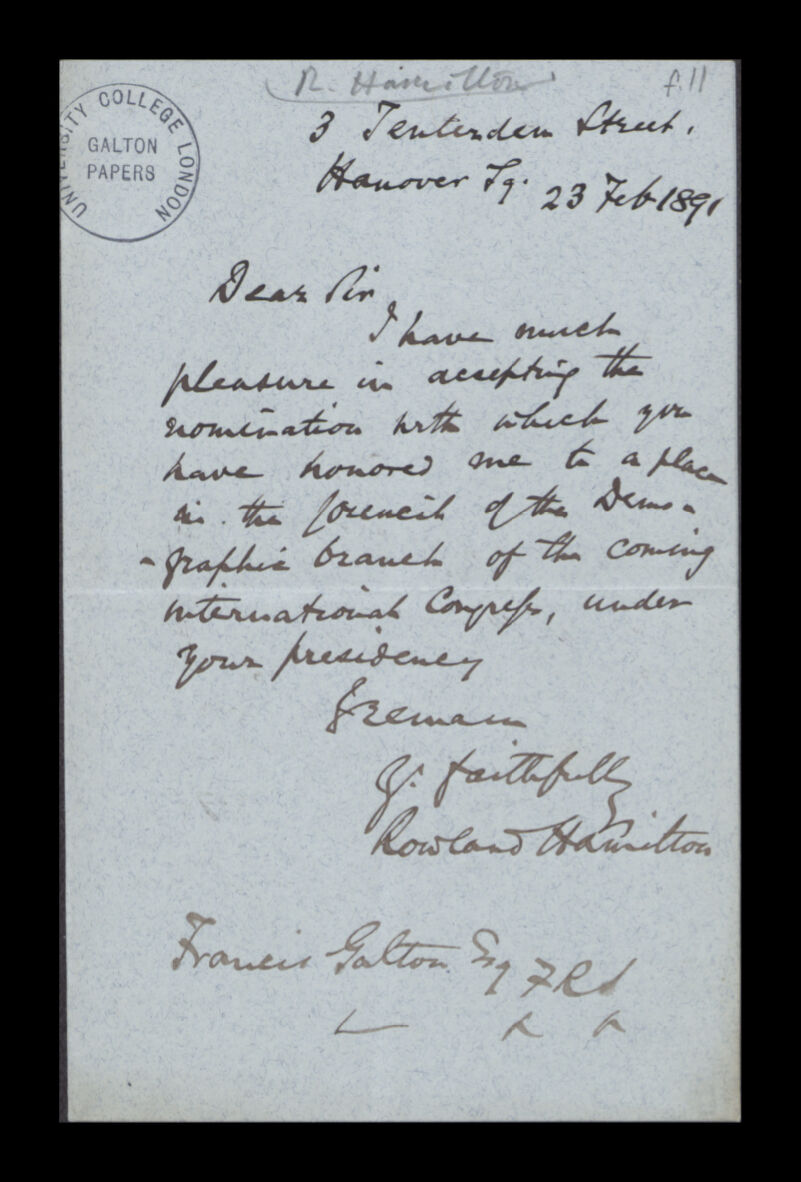 R. Hamilton
f.11
UNIVERSITY COLLEGE LONDON
GALTON
PAPERS
3 Tenterden Street.
Hanover Sq.
23 Feb 1891
Dear Sir
I have much
pleasure in accepting the
nomination with which you
have honored me to a place
in the Council of the Demo-
-graphic branch of the coming
international Congress, under
your presidency
I remain
Yr. faithfully
Rowland Hamilton
Francis Galton Esq FRS